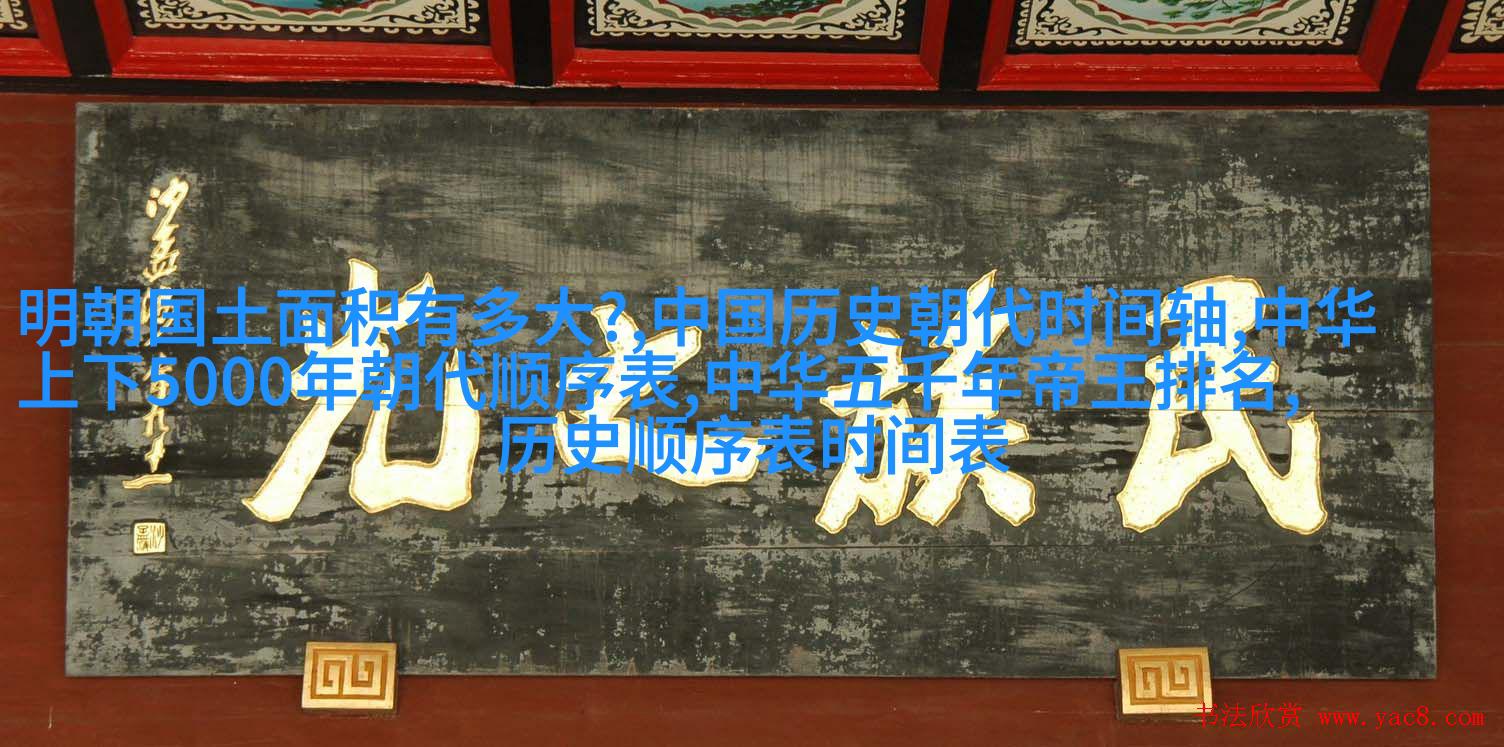 明朝国土面积有多大?,中国历史朝代时间轴,中华
上下5000年朝代顺序表,中华五千年帝王排名,
历史顺序表时间表
民族之光
沙孟海
九十一
书法欣赏 www.yac8.com